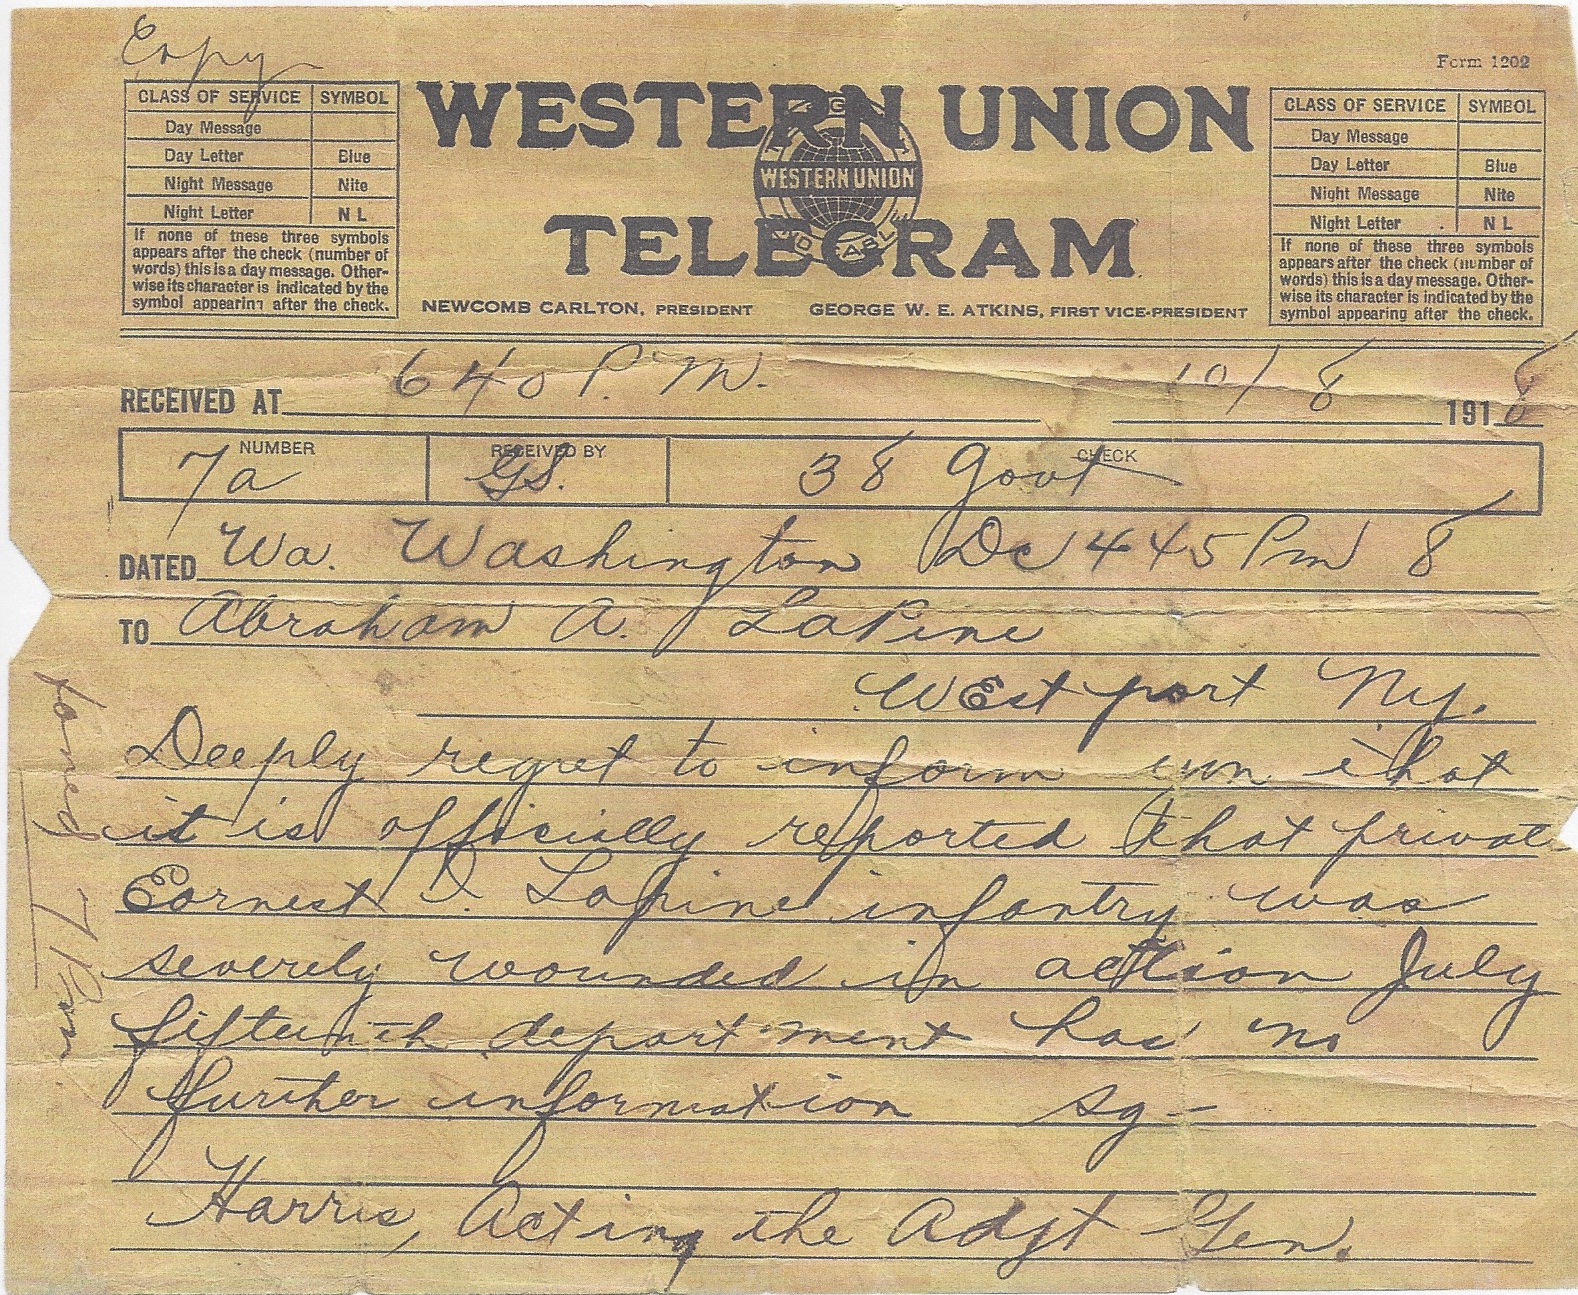 Copy
Form 1202
CLASS OF SERVICE SYMBOL
Day Message
Day Letter Blue
Night Message Nite
Night Letter N L
If none of these three symbols
appears after the check (number of
words) this is a day message. Other-
wise its character is indicated by the
symbol appearing after the check.
WESTERN UNION
WESTERN UNION
TELEGRAM
NEWCOMB CARLTON, PRESIDENT GEORGE W. E. ATKINS, FIRST VICE-PRESIDENT
CLASS OF SERVICE SYMBOL
Day Message
Day Letter Blue
Night Message Nite
Night Letter N L
If none of these three symbols
appears after the check (number of
words) this is a day message. Other-
wise its character is indicated by the
symbol appearing after the check.
RECEIVED AT 640 P.M. 10/8 1918
NUMBER RECEIVED BY CHECK
7a GS. 38 Govt
DATED Wa. Washington DC 445Pm 8
TO Abraham A. LaPine
West port Ny.
Deeply regret to inform you that
it is officially reported that private
Earnest D. Lapine infantry was
severely wounded in action July
fifteenth department has no
further information sg-
Harris, Acting the Adjt Gen.
foned 7 Pm.